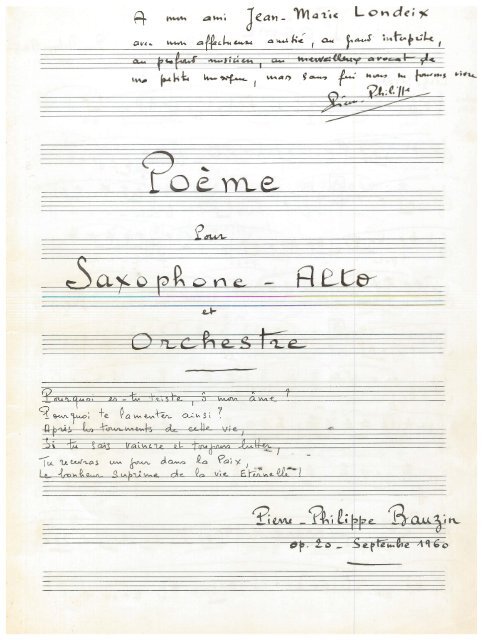 A mon ami Jean-Marie Londeix
avec mon affectueuse amitié, au grand interprète,
au profond musicien, au merveilleux avocat de
ma petite musique, mais sans qui nous ne pouvons vivre
Pierre-Philippe
Poème
Pour
Saxophone - Alto
et
Orchestre
Pourquoi es-tu triste, ô mon âme ?
Pourquoi te lamenter ainsi ?
Après les tourments de cette vie,
Si tu sais vaincre et toujours lutter,
Tu recevras un jour dans la Paix,
Le bonheur suprême de la vie Eternelle !
Pierre-Philippe Bauzin
op. 20 - Septembre 1960